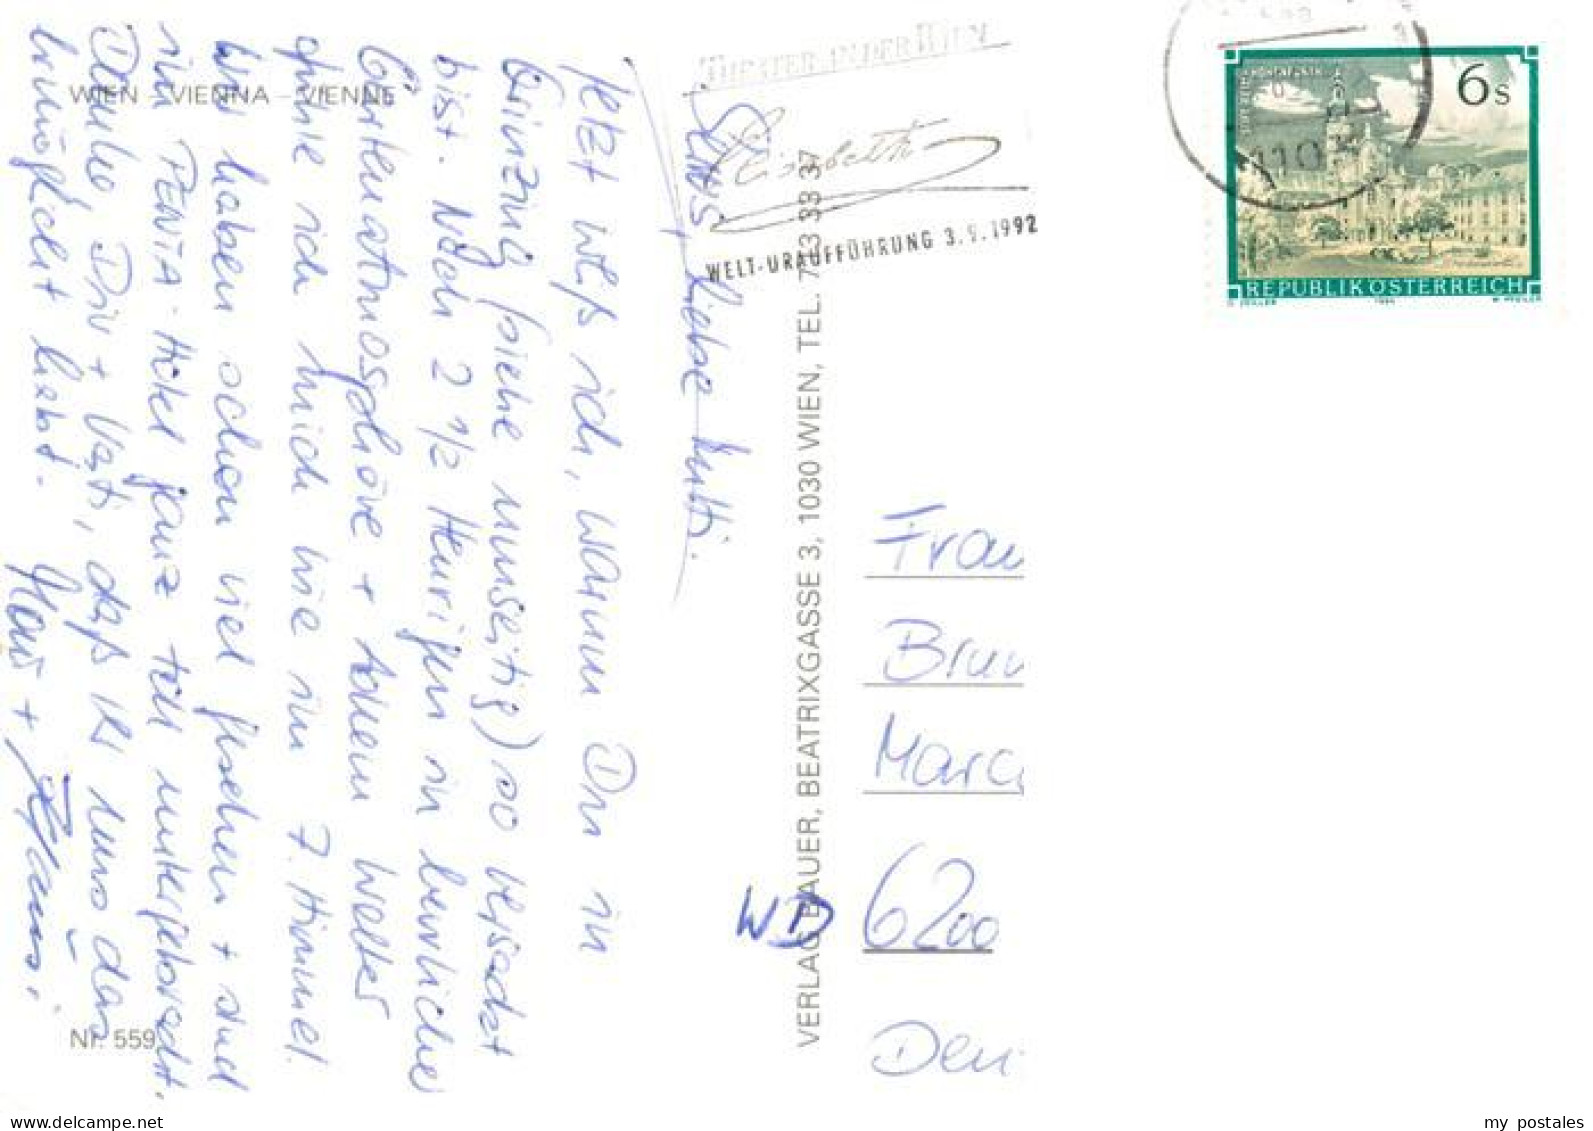 WIEN – VIENNA – VIENNE
Servus, liebe Mutti.
Jetzt weß ich, warum Du in
Grinzing (siehe umseitig) so versackt
bist. Nach 2 1/2 Heurigen in herrlicher
Gartenatmosphäre + tollem Wetter
fühle ich mich wie im 7. Himmel.
Wir haben schon viel gesehen + sind
im PENTA-Hotel ganz toll untergebracht.
Danke, Dir + Vati, daß Ihr uns das
ermöglicht habt.
+
Nr. 559
THEATER AN DER WIEN
Elisabeth
WELT-URAUFFÜHRUNG 3.9.1992
VERLAG BAUER, BEATRIXGASSE 3, 1030 WIEN, TEL. 713 33 37
1103
6 S
REPUBLIK ÖSTERREICH
Frau
Brun
Marc
WD 6200
Den
my postales